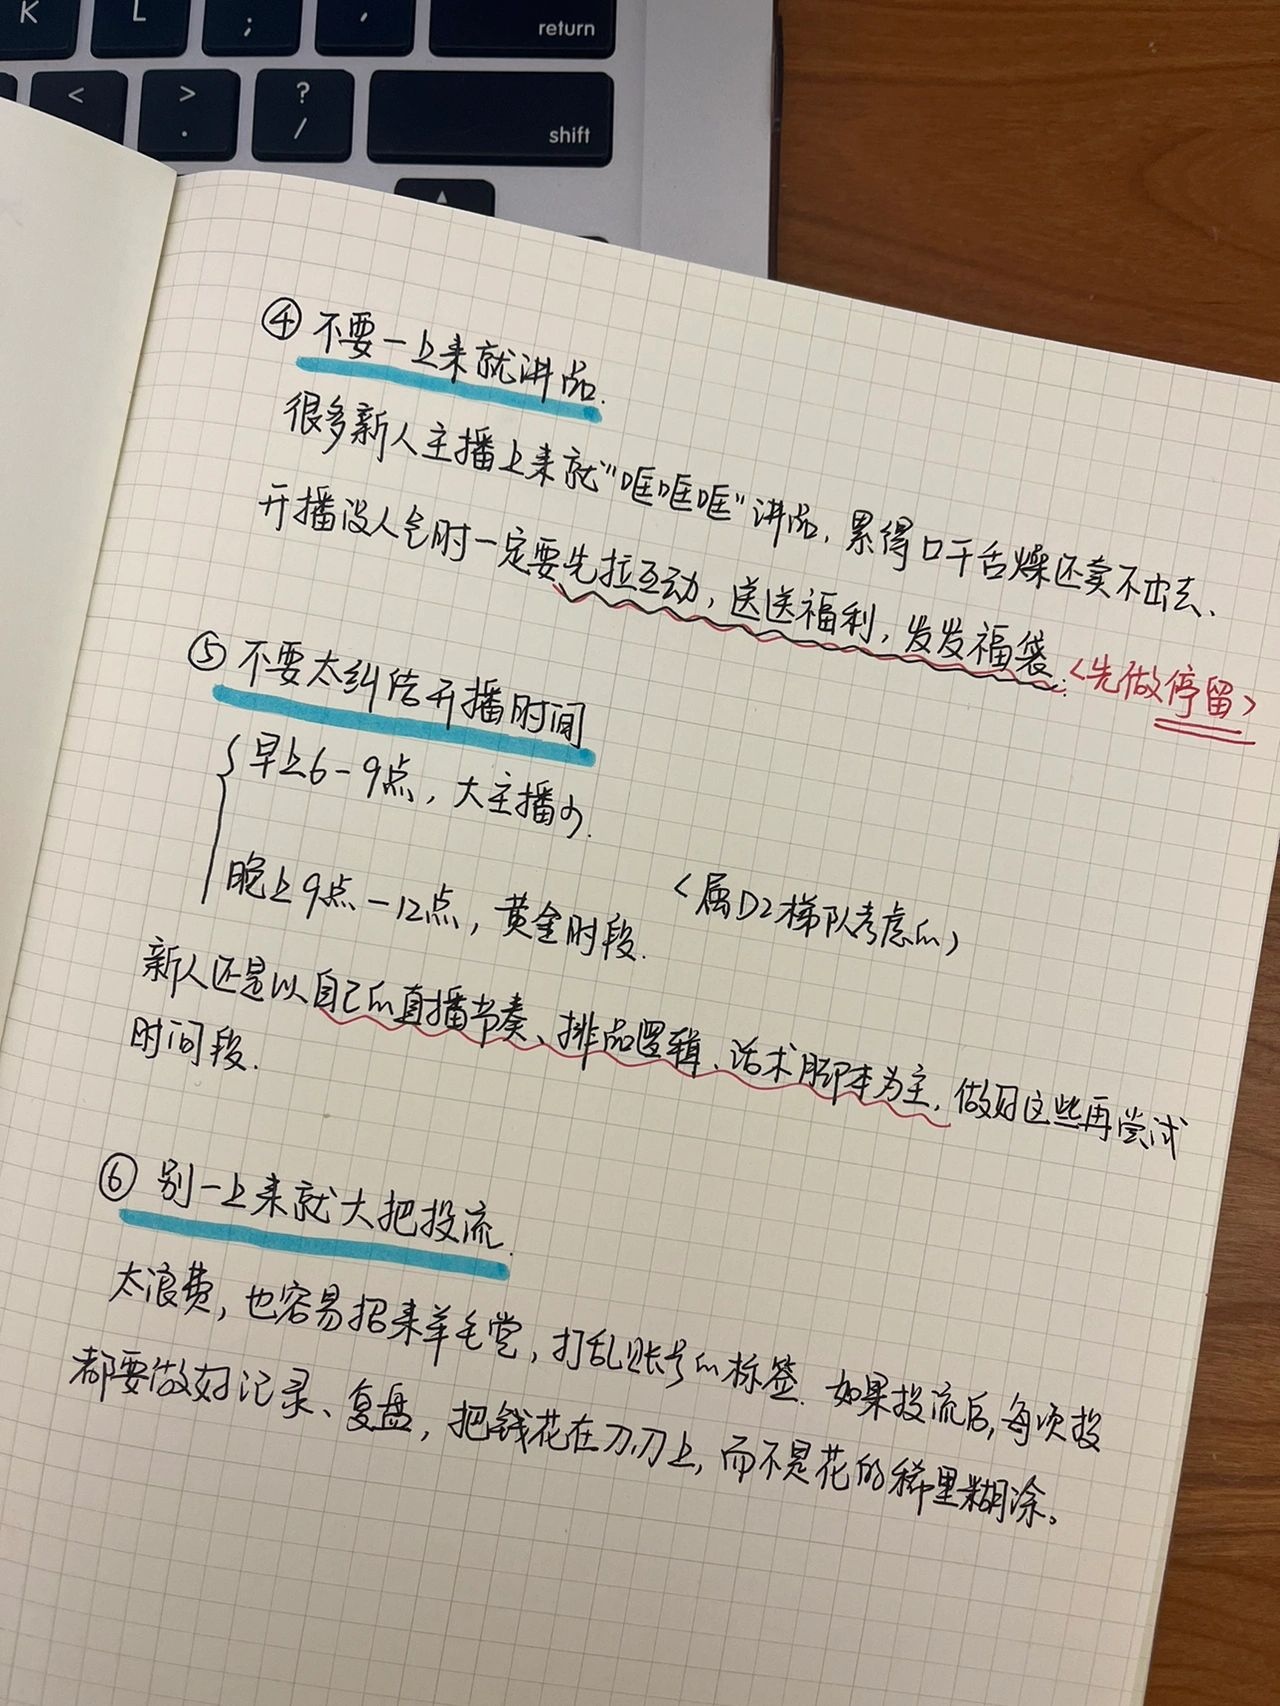 K
L
;
,
return
<
>
.
?
/
shift
④ 不要一上来就讲品.
很多新人主播上来就“哐哐哐”讲品, 累得口干舌燥还卖不出去、
开播没人气时一定要先拉互动, 送送福利, 发发福袋. <先做停留>
⑤ 不要太纠结开播时间
早上6-9点, 大主播少.
晚上9点-12点, 黄金时段. <属D2梯队考虑的>
新人还是以自己的直播节奏、排品逻辑、话术脚本为主, 做好这些再尝试
时间段.
⑥ 别一上来就大把投流.
太浪费, 也容易招来羊毛党, 打乱账号的标签. 如果投流后, 每项投
都要做好记录、复盘, 把钱花在刀刃上, 而不是花的稀里糊涂。